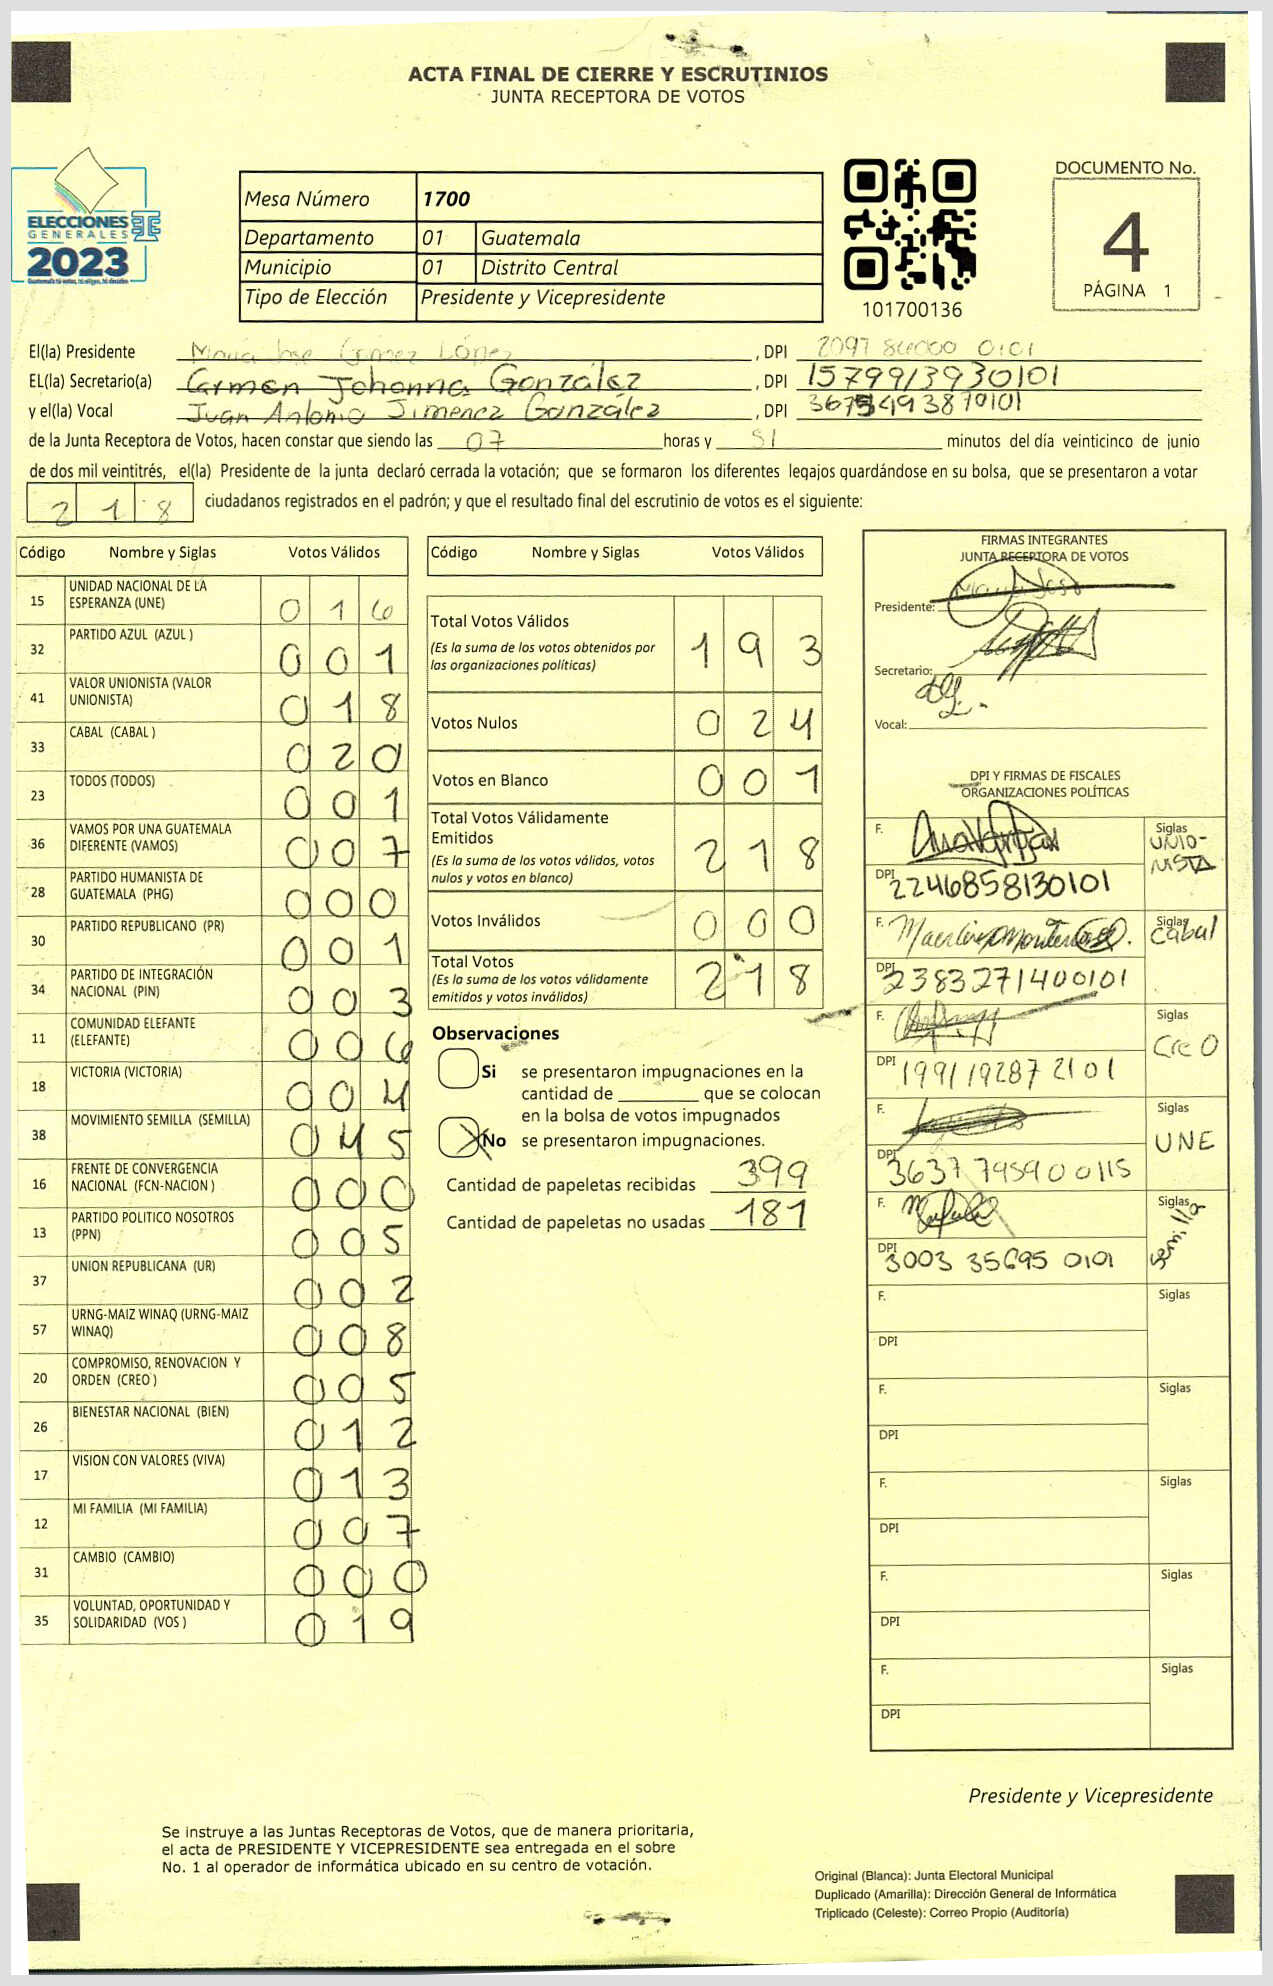 ACTA FINAL DE CIERRE Y ESCRUTINIOS
JUNTA RECEPTORA DE VOTOS
ELECCIONES
GENERALES
2023
Mesa Número 1700
Departamento 01 Guatemala
Municipio 01 Distrito Central
Tipo de Elección Presidente y Vicepresidente
101700136
DOCUMENTO No.
4
PÁGINA 1
El(la) Presidente María José Gómez López, DPI
EL(la) Secretario(a) Carmen Johanna González, DPI 1579913930101
y el(la) Vocal Juan Antonio Jimenez González, DPI
de la Junta Receptora de Votos, hacen constar que siendo las 07 horas y 51 minutos del día veinticinco de junio
de dos mil veintitrés, el(la) Presidente de la junta declaró cerrada la votación; que se formaron los diferentes legajos guardándose en su bolsa, que se presentaron a votar
218 ciudadanos registrados en el padrón; y que el resultado final del escrutinio de votos es el siguiente:
Código Nombre y Siglas Votos Válidos
15 UNIDAD NACIONAL DE LA ESPERANZA (UNE) 016
32 PARTIDO AZUL (AZUL ) 001
41 VALOR UNIONISTA (VALOR UNIONISTA) 018
33 CABAL (CABAL ) 020
23 TODOS (TODOS) 001
36 VAMOS POR UNA GUATEMALA DIFERENTE (VAMOS) 007
28 PARTIDO HUMANISTA DE GUATEMALA (PHG) 000
30 PARTIDO REPUBLICANO (PR) 001
34 PARTIDO DE INTEGRACIÓN NACIONAL (PIN) 003
11 COMUNIDAD ELEFANTE (ELEFANTE) 006
18 VICTORIA (VICTORIA) 004
38 MOVIMIENTO SEMILLA (SEMILLA) 045
16 FRENTE DE CONVERGENCIA NACIONAL (FCN-NACION ) 000
13 PARTIDO POLITICO NOSOTROS (PPN) 005
37 UNION REPUBLICANA (UR) 002
57 URNG-MAIZ WINAQ (URNG-MAIZ WINAQ) 008
20 COMPROMISO, RENOVACION Y ORDEN (CREO ) 005
26 BIENESTAR NACIONAL (BIEN) 012
17 VISION CON VALORES (VIVA) 013
12 MI FAMILIA (MI FAMILIA) 007
31 CAMBIO (CAMBIO) 000
35 VOLUNTAD, OPORTUNIDAD Y SOLIDARIDAD (VOS ) 019
Código Nombre y Siglas Votos Válidos
Total Votos Válidos 193
(Es la suma de los votos obtenidos por
las organizaciones políticas)
Votos Nulos 024
Votos en Blanco 001
Total Votos Válidamente
Emitidos 218
(Es la suma de los votos válidos, votos
nulos y votos en blanco)
Votos Inválidos 000
Total Votos 218
(Es la suma de los votos válidamente
emitidos y votos inválidos)
Observaciones
Si se presentaron impugnaciones en la
cantidad de ________ que se colocan
en la bolsa de votos impugnados
No se presentaron impugnaciones.
Cantidad de papeletas recibidas 399
Cantidad de papeletas no usadas 181
FIRMAS INTEGRANTES
JUNTA RECEPTORA DE VOTOS
Presidente:
Secretario:
Vocal:
DPI Y FIRMAS DE FISCALES
ORGANIZACIONES POLÍTICAS
F. Siglas UNIO-
NISTA
DPI 2246858130101
F. Siglas Cabal
DPI 2383271400101
F. Siglas CreO
DPI 1991192872101
F. Siglas UNE
DPI 3637795900115
F. Siglas semilla
DPI 3003 35695 0101
F. Siglas
DPI
F. Siglas
DPI
F. Siglas
DPI
F. Siglas
DPI
F. Siglas
DPI
Presidente y Vicepresidente
Se instruye a las Juntas Receptoras de Votos, que de manera prioritaria,
el acta de PRESIDENTE Y VICEPRESIDENTE sea entregada en el sobre
No. 1 al operador de informática ubicado en su centro de votación.
Original (Blanca): Junta Electoral Municipal
Duplicado (Amarilla): Dirección General de Informática
Triplicado (Celeste): Correo Propio (Auditoría)